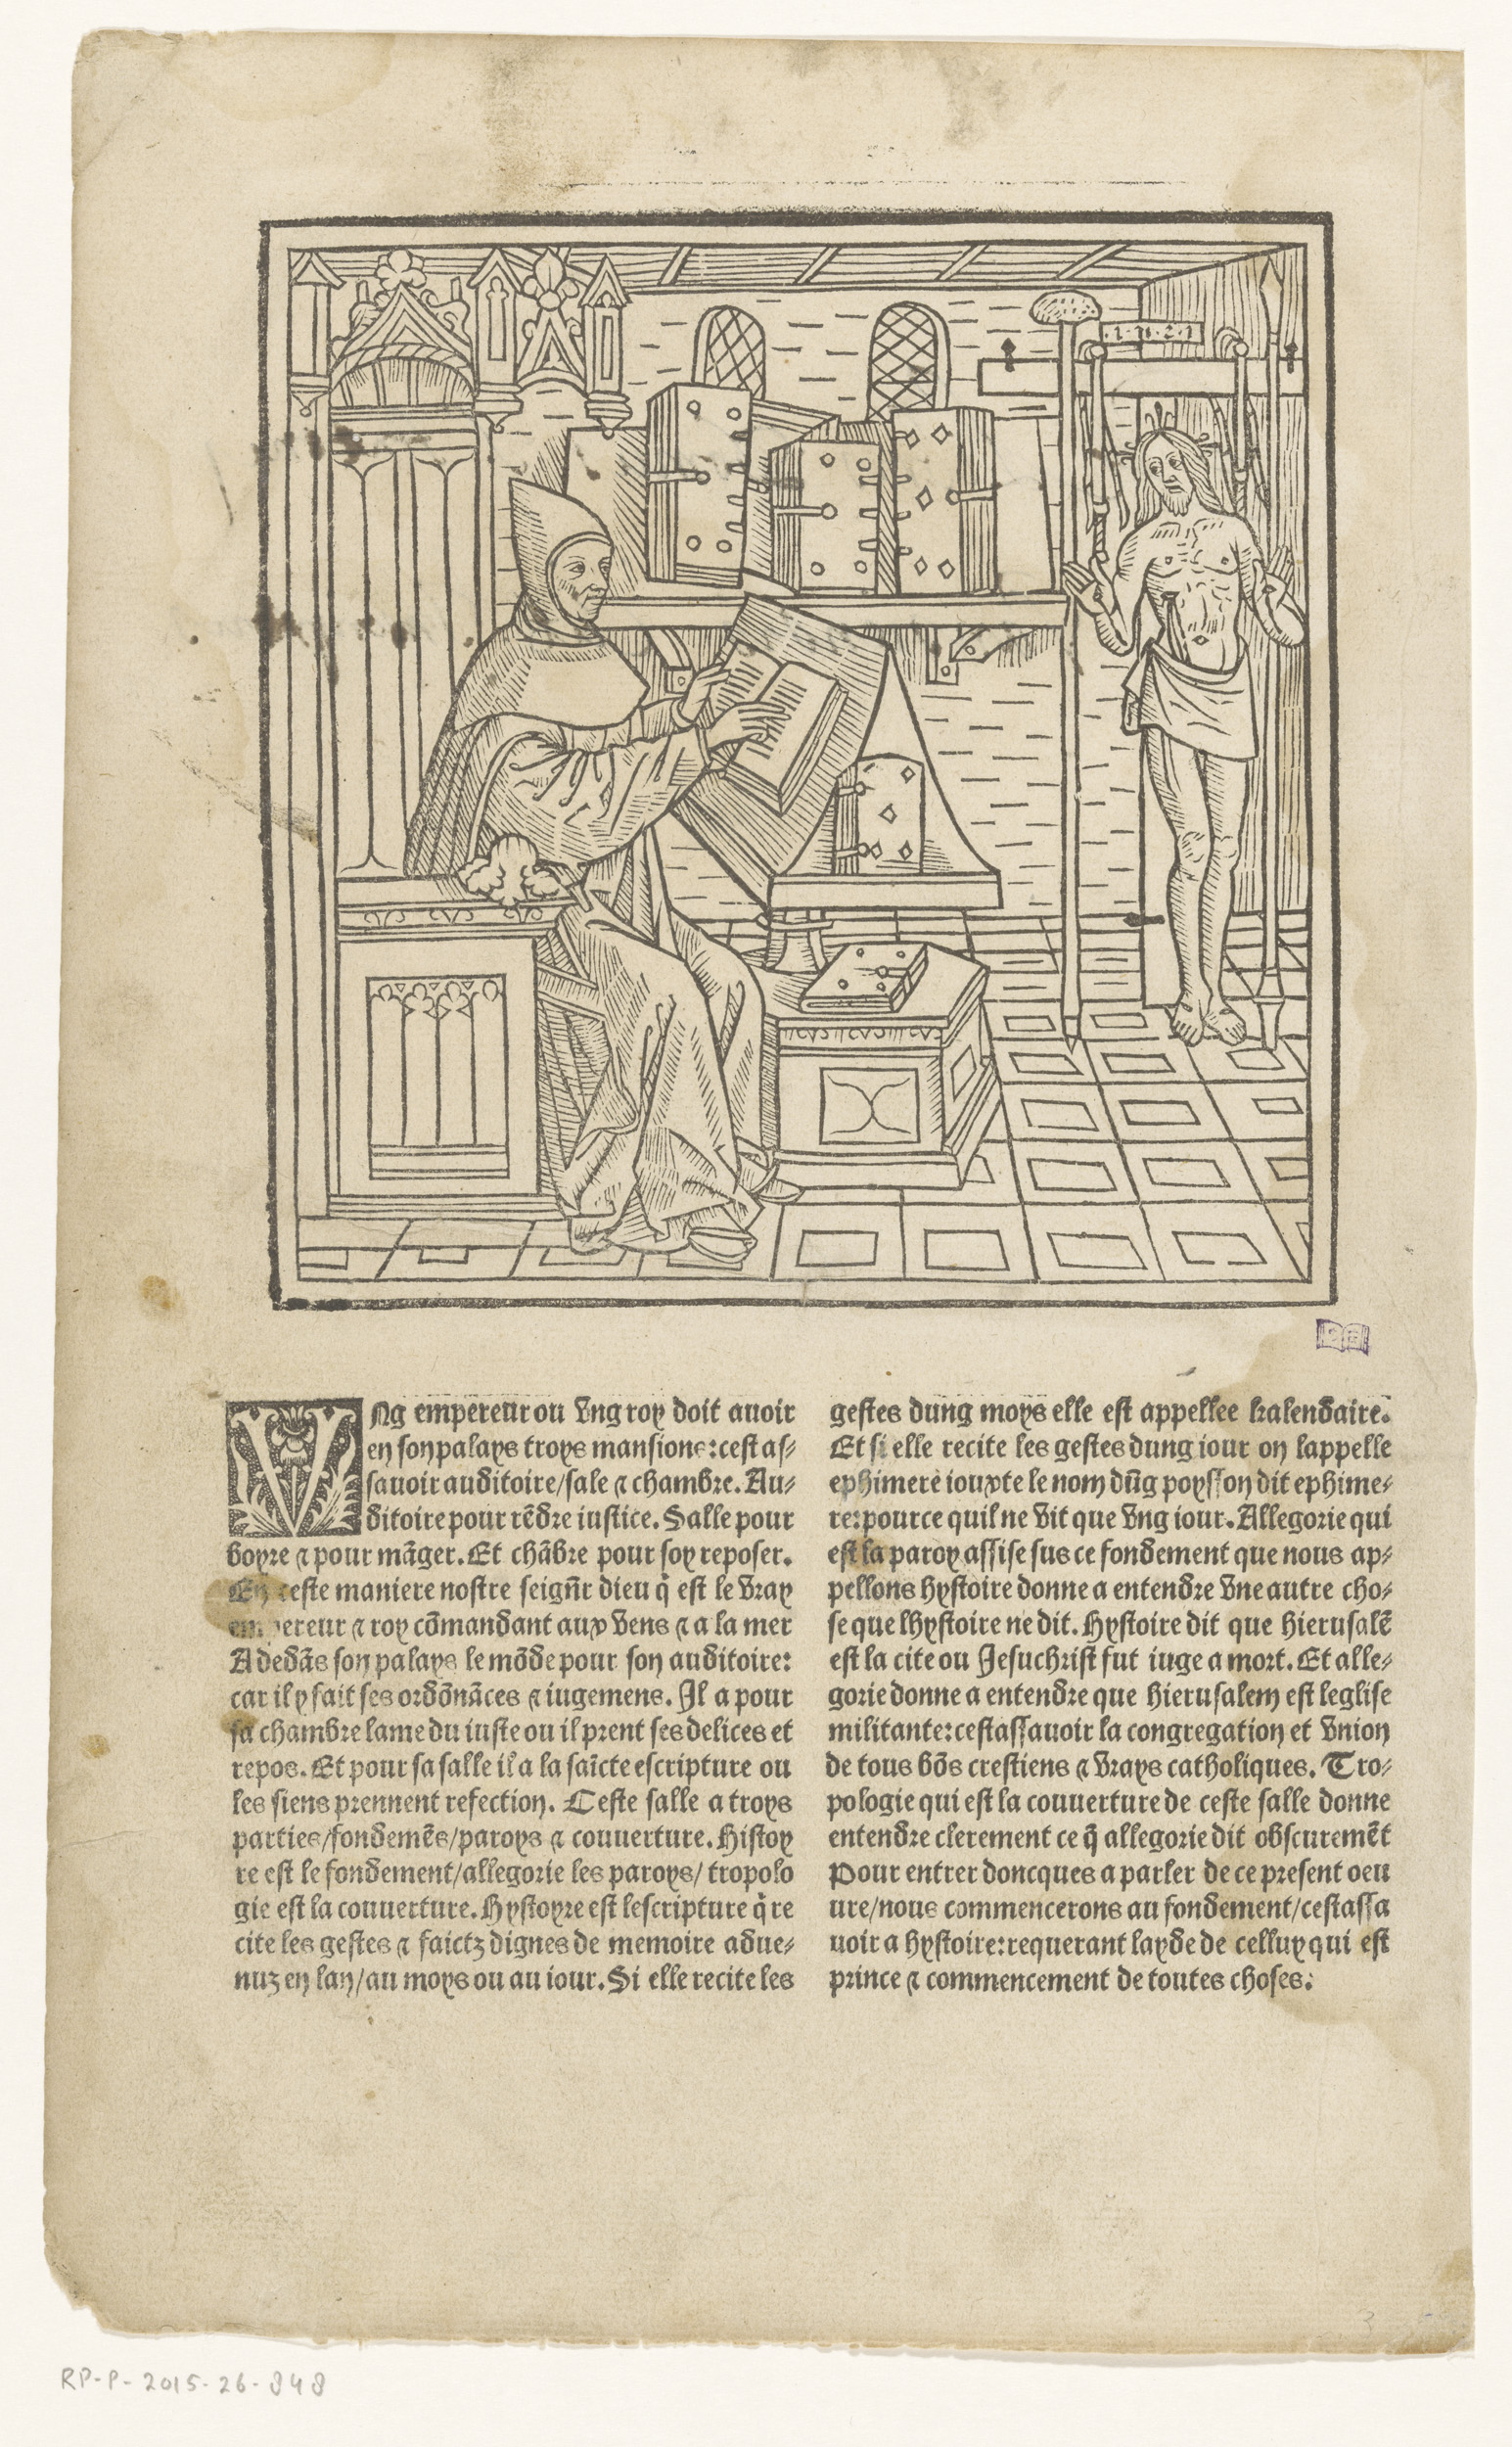 .I.N.R.I
VNg empereur ou vng roy doit auoir
en son palays troys mansions: cest as⸗
sauoir auditoire/sale ⁊ chambre. Au⸗
ditoire pour rēdre iustice. Salle pour
boyre ⁊ pour māger. Et chābre pour soy reposer.
En ceste maniere nostre seign̄r dieu q̄ est le vray
empereur ⁊ roy cōmandant aux vens ⁊ a la mer
A dedās son palays le mōde pour son auditoire:
car il y fait ses ordōnāces ⁊ iugemens. Il a pour
sa chambre lame du iuste ou il prent ses delices et
repos. Et pour sa salle il a la saīcte escripture ou
les siens prennent refection. Ceste salle a troys
parties/fondemēs/paroys ⁊ couuerture. Histoy
re est le fondement/allegorie les paroys/ tropolo
gie est la couuerture. Hystoyre est lescripture q̄ re
cite les gestes ⁊ faictz dignes de memoire adue⸗
nuz en lan/au moys ou au iour. Si elle recite les
gestes dung moys elle est appellee kalendaire.
Et si elle recite les gestes dung iour on lappelle
ephimere iouxte le nom dūg poysson dit ephime⸗
re: pource quil ne vit que vng iour. Allegorie qui
est la paroy assise sus ce fondement que nous ap⸗
pellons hystoire donne a entendre vne autre cho⸗
se que lhystoire ne dit. Hystoire dit que hierusalē
est la cite ou Jesuchrist fut iuge a mort. Et alle⸗
gorie donne a entendre que hierusalem est leglise
militante: cestassauoir la congregation et vnion
de tous bōs crestiens ⁊ vrays catholiques. Tro⸗
pologie qui est la couuerture de ceste salle donne
entendre clerement ce q̄ allegorie dit obscuremēt
Pour entrer doncques a parler de ce present oeu
ure/nous commencerons au fondement/cestassa
uoir a hystoire: requerant layde de celluy qui est
prince ⁊ commencement de toutes choses.
RP-P-2015-26-848